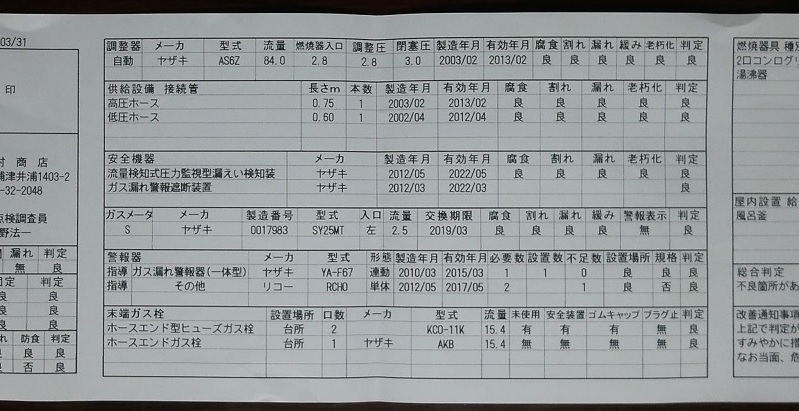 03/31
印
村商店
浦津井浦1403-2
-32-2048
点検調査員
野法一
漏れ 判定
無 良
判定
良
良
良
防食 判定
良 良
否 良
調整器 メーカ 型式 流量 燃焼器入口 調整圧 閉塞圧 製造年月 有効年月 腐食 割れ 漏れ 緩み 老朽化 判定
自動 ヤザキ AS6Z 84.0 2.8 2.8 3.0 2003/02 2013/02 良 良 良 良 良 良
供給設備 接続管 長さm 本数 製造年月 有効年月 腐食 割れ 漏れ 老朽化 判定
高圧ホース 0.75 1 2003/02 2013/02 良 良 良 良 良
低圧ホース 0.60 1 2002/04 2012/04 良 良 良 良 良
安全機器 メーカ 製造年月 有効年月 腐食 割れ 漏れ 老朽化 判定
流量検知式圧力監視型漏えい検知装 ヤザキ 2012/05 2022/05 良 良 良 良 良
ガス漏れ警報遮断装置 ヤザキ 2012/03 2022/03 良 良 良 良 良
ガスメータ メーカ 製造番号 型式 入口 流量 交換期限 腐食 割れ 漏れ 緩み 警報表示 判定
S ヤザキ 0017983 SY25MT 左 2.5 2019/03 良 良 良 良 無 良
警報器 メーカ 型式 形態 製造年月 有効年月 必要数 設置数 不足数 設置場所 規格 判定
指導 ガス漏れ警報器(一体型) ヤザキ YA-F67 連動 2010/03 2015/03 1 1 0 良 良 良
指導 その他 リコー RCHO 単体 2012/05 2017/05 2 1 良 否 良
末端ガス栓 設置場所 口数 メーカ 型式 流量 未使用 安全装置 ゴムキャップ プラグ止 判定
ホースエンド型ヒューズガス栓 台所 2 KCO-11K 15.4 有 有 有 無 良
ホースエンドガス栓 台所 1 ヤザキ AKB 15.4 無 無 無 無 良
燃焼器具 種別
2口コングリ
湯沸器
屋内設置 給
風呂釜
総合判定
不良箇所があ
改善通知事項
上記で判定が
すみやかに措
なお当面、危